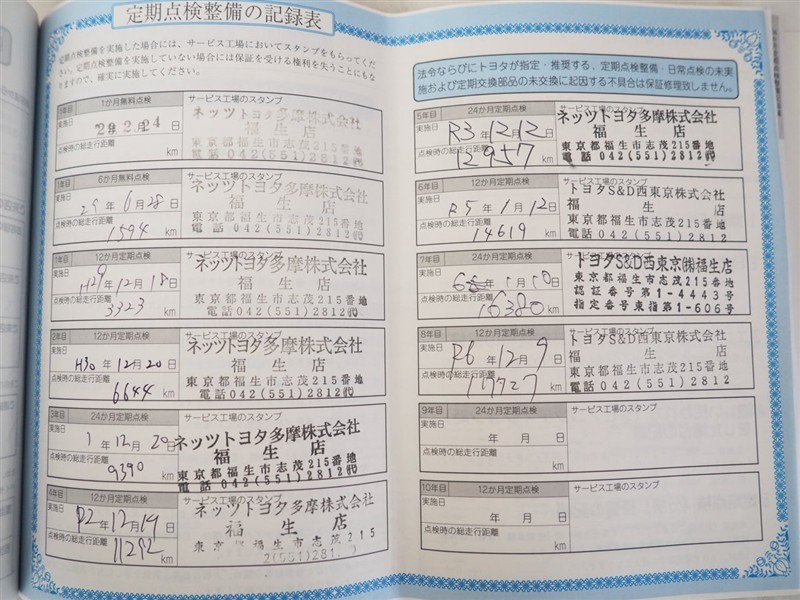 定期点検整備の記録表
定期点検整備を実施した場合には、サービス工場においてスタンプをもらってくだ
さい。定期点検整備を実施していない場合には保証を受ける権利を失うことにもな
りますので、確実に実施してください。
1か月無料点検
サービス工場のスタンプ
実施日
29 2 24日
点検時の総走行距離
km
ネッツトヨタ多摩株式会社
福生店
東京都福生市志茂215番地
電話 042(551)2812代
6か月無料点検
サービス工場のスタンプ
実施日
29年6月28日
点検時の総走行距離
1594 km
ネッツトヨタ多摩株式会社
福生店
東京都福生市志茂215番地
電話 042(551)2812代
1年目
12か月定期点検
サービス工場のスタンプ
実施日
H29年12月18日
点検時の総走行距離
3323 km
ネッツトヨタ多摩株式会社
福生店
東京都福生市志茂215番地
電話 042(551)2812代
2年目
12か月定期点検
サービス工場のスタンプ
実施日
H30年12月20日
点検時の総走行距離
6644 km
ネッツトヨタ多摩株式会社
福生店
東京都福生市志茂215番地
電話 042(551)2812代
3年目
24か月定期点検
サービス工場のスタンプ
実施日
1年12月20日
点検時の総走行距離
9390 km
ネッツトヨタ多摩株式会社
福生店
東京都福生市志茂215番地
電話 042(551)2812代
4年目
12か月定期点検
サービス工場のスタンプ
実施日
R2年12月19日
点検時の総走行距離
11292 km
ネッツトヨタ多摩株式会社
福生店
東京都福生市志茂215
2(551)281
法令ならびにトヨタが指定・推奨する、定期点検整備・日常点検の未実
施および定期交換部品の未交換に起因する不具合は保証修理致しません。
5年目
24か月定期点検
サービス工場のスタンプ
実施日
R3年12月12日
点検時の総走行距離
12957 km
ネッツトヨタ多摩株式会社
福生店
東京都福生市志茂215番地
電話 042(551)2812代
6年目
12か月定期点検
サービス工場のスタンプ
実施日
R5年1月12日
点検時の総走行距離
14619 km
トヨタS&D西東京株式会社
福生店
東京都福生市志茂215番地
電話 042(551)2812
7年目
24か月定期点検
サービス工場のスタンプ
実施日
年1月10日
点検時の総走行距離
16380 km
トヨタS&D西東京㈱福生店
東京都福生市志茂215番地
認証番号第1-4443号
指定番号東指第1-606号
8年目
12か月定期点検
サービス工場のスタンプ
実施日
R6年12月9日
点検時の総走行距離
17727 km
トヨタS&D西東京株式会社
福生店
東京都福生市志茂215番地
電話 042(551)2812
9年目
24か月定期点検
サービス工場のスタンプ
実施日
年 月 日
点検時の総走行距離
km
10年目
12か月定期点検
サービス工場のスタンプ
実施日
年 月 日
点検時の総走行距離
km